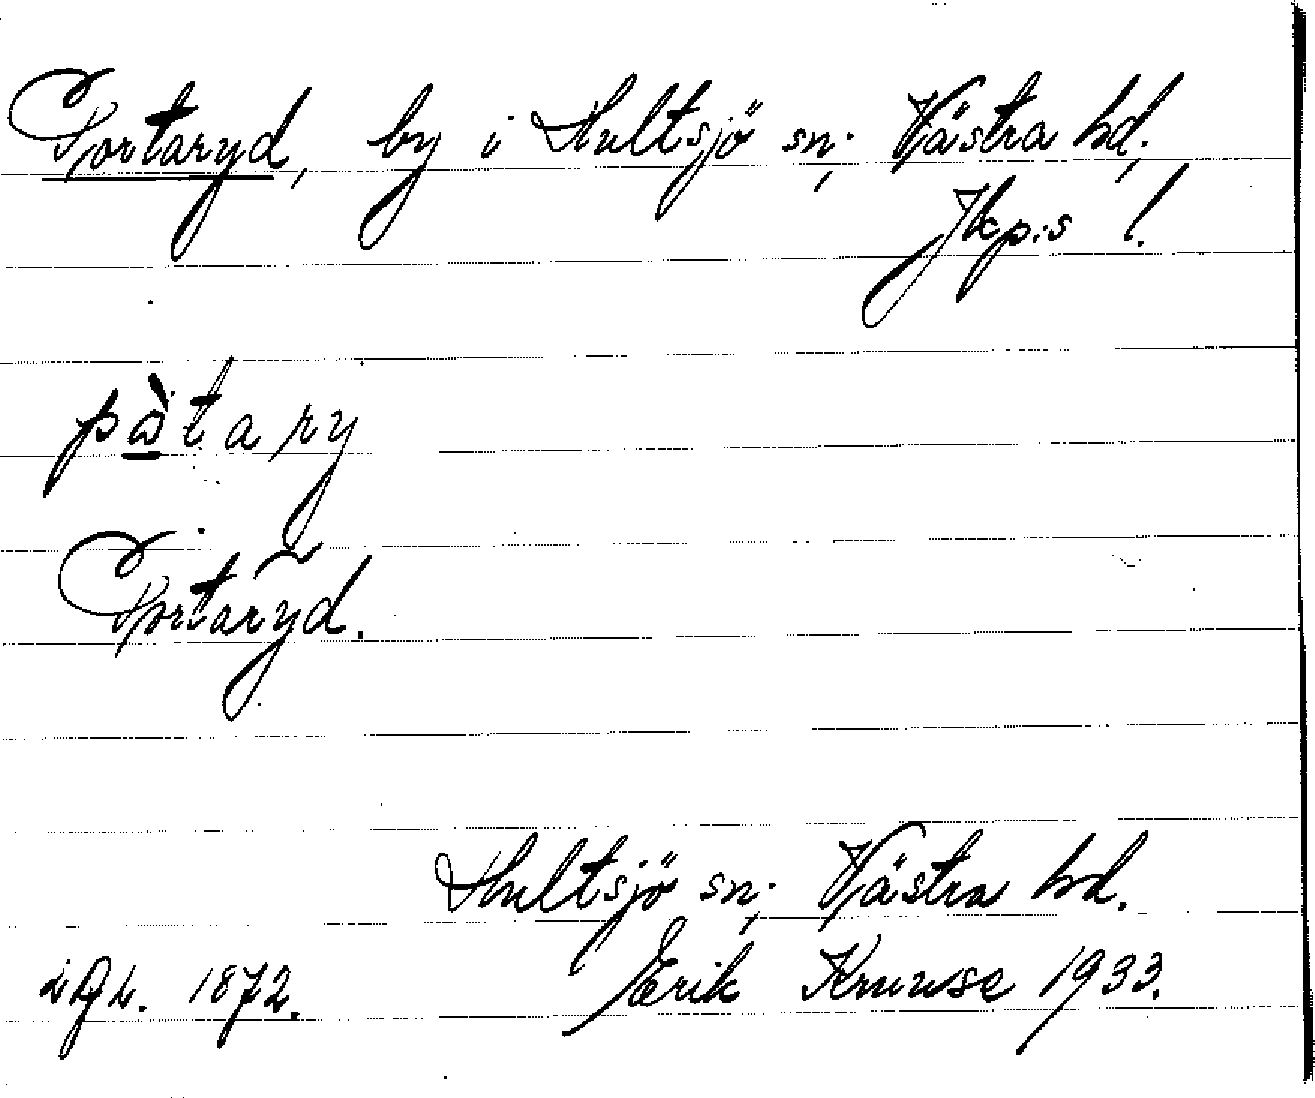 Portaryd, by i Hultsjö sn; Västra hd,
Jkp:s l.
pàtary
Portarỹd.
Hultsjö sn; Västra hd.
Erik Kruuse 1933.
1872.